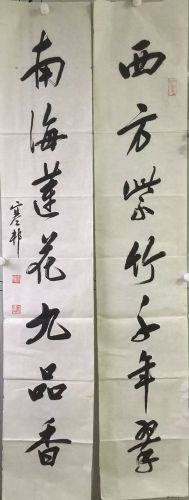 西方紫竹千年翠
南海莲花九品香
寒邨